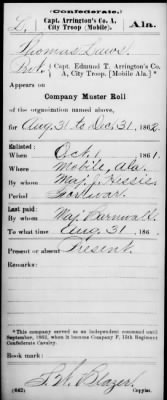 (Confederate.)
L, Capt. Arrington's Co. A, City Troop (Mobile). Ala.
Thomas Laws
Pvt., Capt. Edmund T. Arrington's Co. A, City Troop, [Mobile Ala.]
Appears on
Company Muster Roll
of the organization named above,
for Aug. 31 to Dec. 31, 1862.
Enlisted:
When Oct. 1, 1861.
Where Mobile, Ala.
By whom Maj.
Period for war.
Last paid:
By whom Maj. Barnwall
To what time Aug. 31, 186
Present or absent Present.
Remarks:
*This company served as an independent command until
September, 1862, when it became Company F, 15th Regiment
Confederate Cavalry.
Book mark:
(642) Copyist.